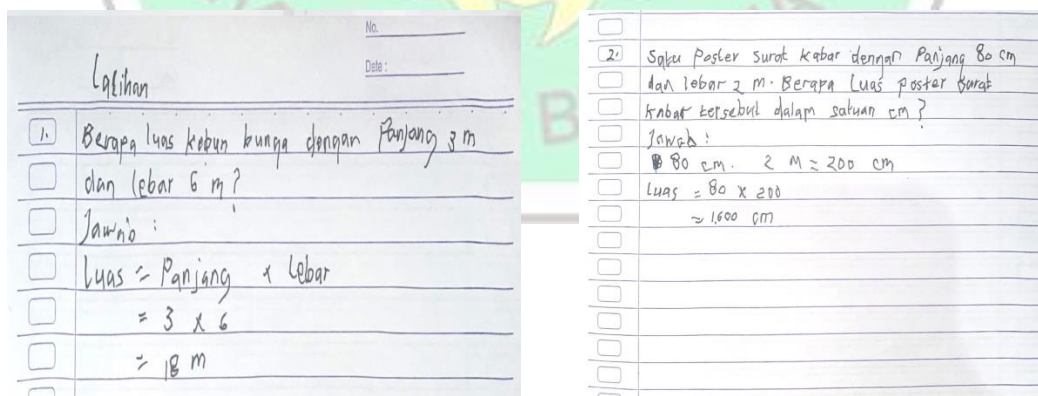 No.
Date :
Latihan
1. Berapa luas kebun bunga dengan Panjang 3 m
dan lebar 6 m?
Jawab :
Luas = Panjang x Lebar
= 3 x 6
= 18 m
2. Satu Poster Surat Kabar dengan Panjang 80 cm
dan lebar 2 m. Berapa Luas poster Surat
Kabar tersebut dalam satuan cm ?
Jawab :
80 cm. 2 M = 200 cm
Luas = 80 x 200
= 1,600 cm
B